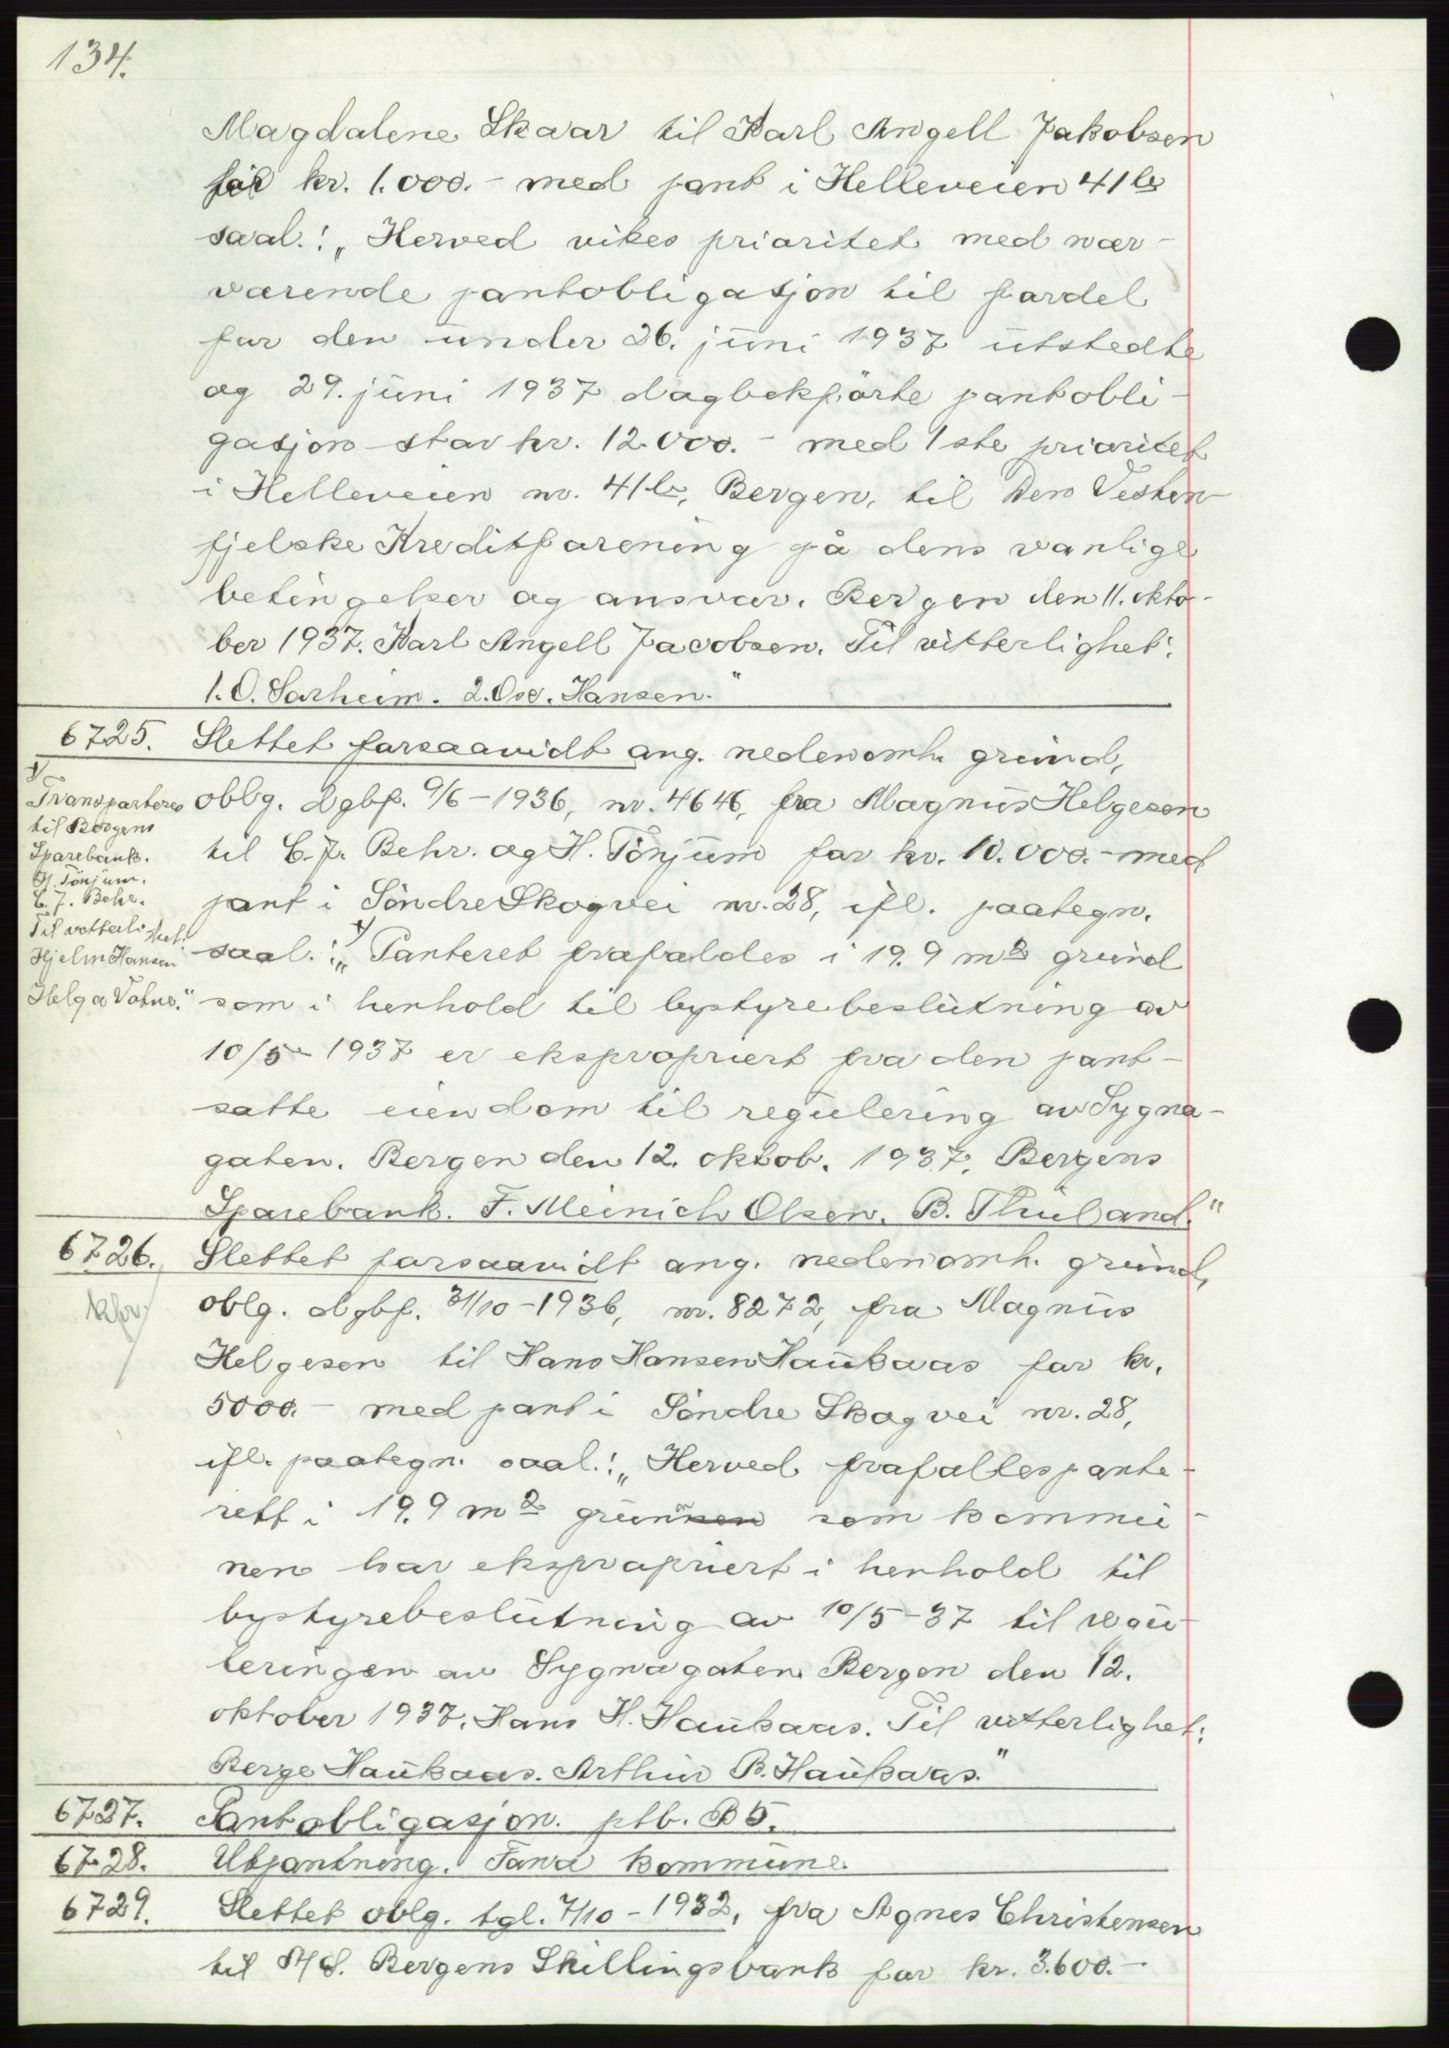 134.
Magdalene Skaar til Karl Angell Jakobsen
for kr. 1.000.- med pant i Helleveien 41 b
saal.: „Herved vikes prioritet med nær-
værende pantobligasjon til fordel
for den under 26. juni 1937 utstedte
og 29. juni 1937 dagbokførte pantobli-
gasjon stor kr. 12.000.- med 1ste prioritet
i Helleveien nr. 41 b, Bergen, til Den Vesten-
fjelske Kreditforening på dens vanlige
betingelser og ansvar. Bergen den 11. okto-
ber 1937. Karl Angell Jacobsen. Til vitterlighet:
1. O. Sarheim. 2. Osc. Hansen."
6725. Slettet forsaavidt ang. nedenomh. grund,
oblg. dgbf. 9/6-1936, nr. 4646, fra Magnus Helgesen
til C. J. Behr. og H. Tönjum for kr. 10.000.- med
pant i Söndre Skogvei nr. 28, ifl. paategn.
saal.: „Panteret frafaldes i 19.9 m2 grund
som i henhold til bystyrebeslutning av
10/5-1937 er ekspropriert fra den pant-
satte eiendom til regulering av Sygna-
gaten. Bergen den 12. oktob. 1937. Bergens
Sparebank. F. Meinich Olsen. B. Thuland."
Transporteres
til Bergens
Sparebank.
H. Tönjum.
C. J. Behr.
Til vitterlighet:
Hjelm Hansen
Helga Vatne."
6726. Slettet forsaavidt ang. nedenomh. grund,
oblg. dgbf. 31/10-1936, nr. 8272, fra Magnus
Helgesen til Hans Hansen Haukaas for kr.
5000.- med pant i Söndre Skogvei nr. 28,
ifl. paategn. saal.: „Herved frafalles pante-
rett i 19.9 m2 grunn som kommu-
nen har ekspropriert i henhold til
bystyrebeslutning av 10/5-37 til regu-
leringen av Sygnagaten. Bergen den 12.
oktober 1937. Hans H. Haukaas. Til vitterlighet:
Berge Haukaas. Arthur B. Haukaas."
6727. Pantobligasjon. ptb. B5.
6728. Utpantning. Fana kommune.
6729. Slettet oblg. tgl. 7/10-1932, fra Agnes Christensen
til A/S. Bergens Skillingsbank for kr. 3.600.-